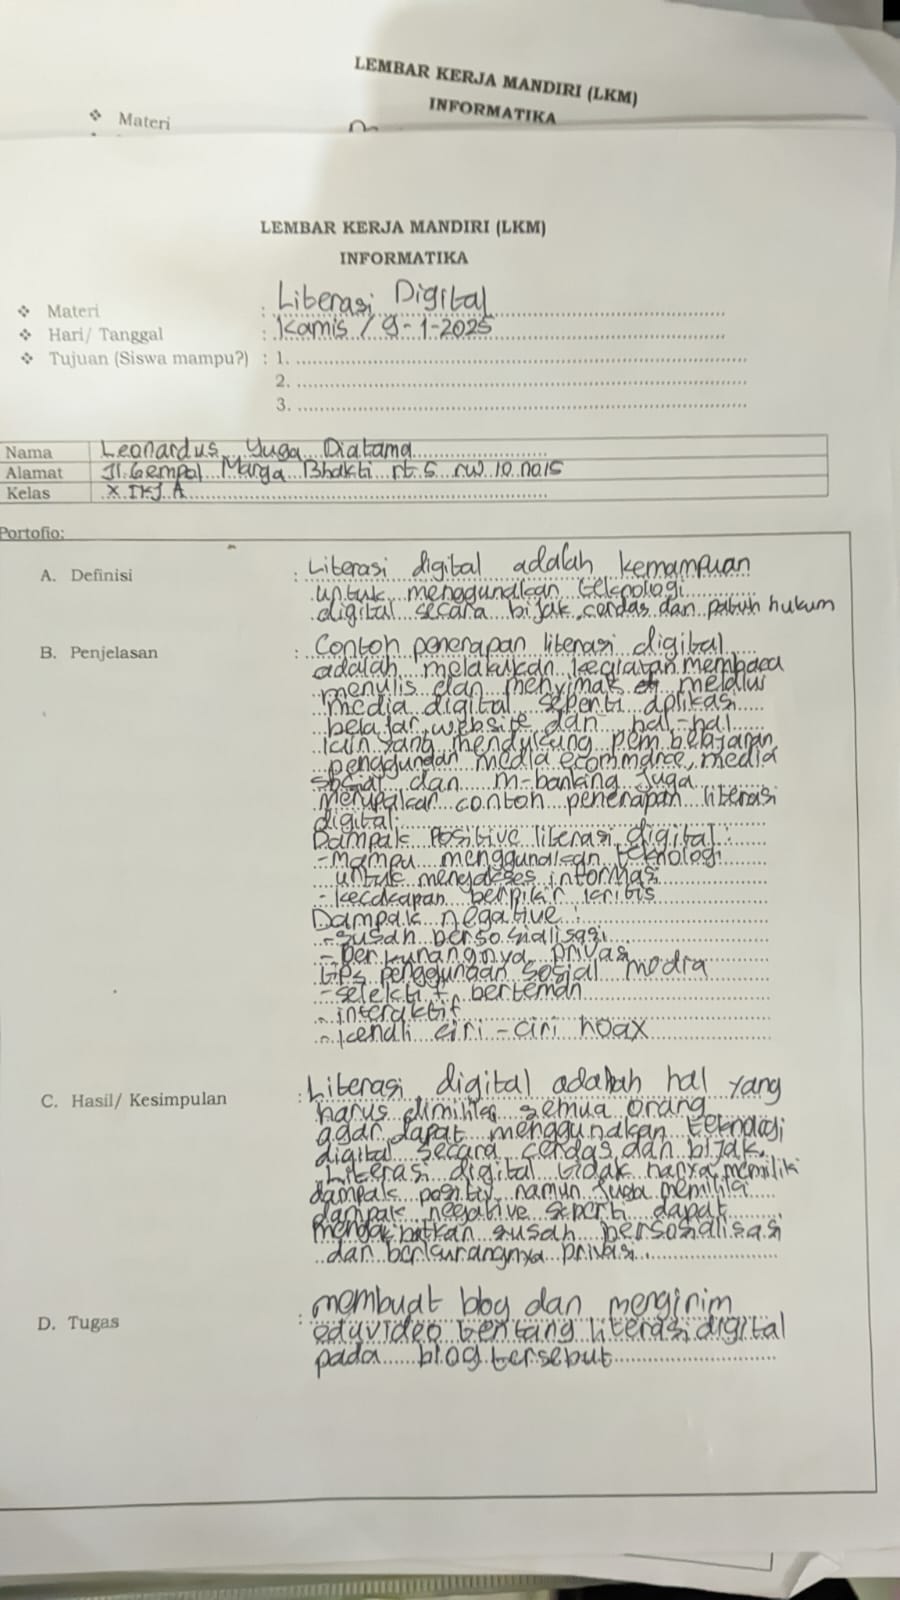 LEMBAR KERJA MANDIRI (LKM)
INFORMATIKA
❖ Materi
LEMBAR KERJA MANDIRI (LKM)
INFORMATIKA
❖ Materi : Literasi Digital
❖ Hari/ Tanggal : Kamis / 9-1-2025
❖ Tujuan (Siswa mampu?) : 1.
2.
3.
Nama Leonardus Yuga Diatama
Alamat Jl. Gempol Marga Bhakti rt.5 rw.10 no15
Kelas X TKJ A
Portofio:
A. Definisi : Literasi digital adalah kemampuan
untuk menggunakan teknologi
digital secara bijak, cerdas dan patuh hukum
B. Penjelasan : Contoh penerapan literasi digital
adalah melakukan kegiatan membaca
menulis dan menyimak melalui
media digital seperti aplikasi
belajar, website dan hal-hal
lain yang mendukung pembelajaran
penggunaan media ecommerce, media
sosial dan m-banking juga
merupakan contoh penerapan literasi
digital.
Dampak Positive literasi digital :
- Mampu menggunakan teknologi
untuk mengakses informasi
- kecakapan berpikir kritis
Dampak negative :
- susah bersosialisasi
- berkurangnya privasi
penggunaan sosial media
- selektif berteman
- interaktif
- kenali ciri-ciri hoax
C. Hasil/ Kesimpulan : Literasi digital adalah hal yang
harus dimiliki semua orang
agar dapat menggunakan teknologi
digital secara cerdas dan bijak.
Literasi digital tidak hanya memiliki
dampak positiv namun juga memiliki
dampak negative seperti dapat
mengakibatkan susah bersosialisasi
dan berkurangnya privasi.
D. Tugas : membuat blog dan mengirim
eduvideo tentang literasi digital
pada blog tersebut